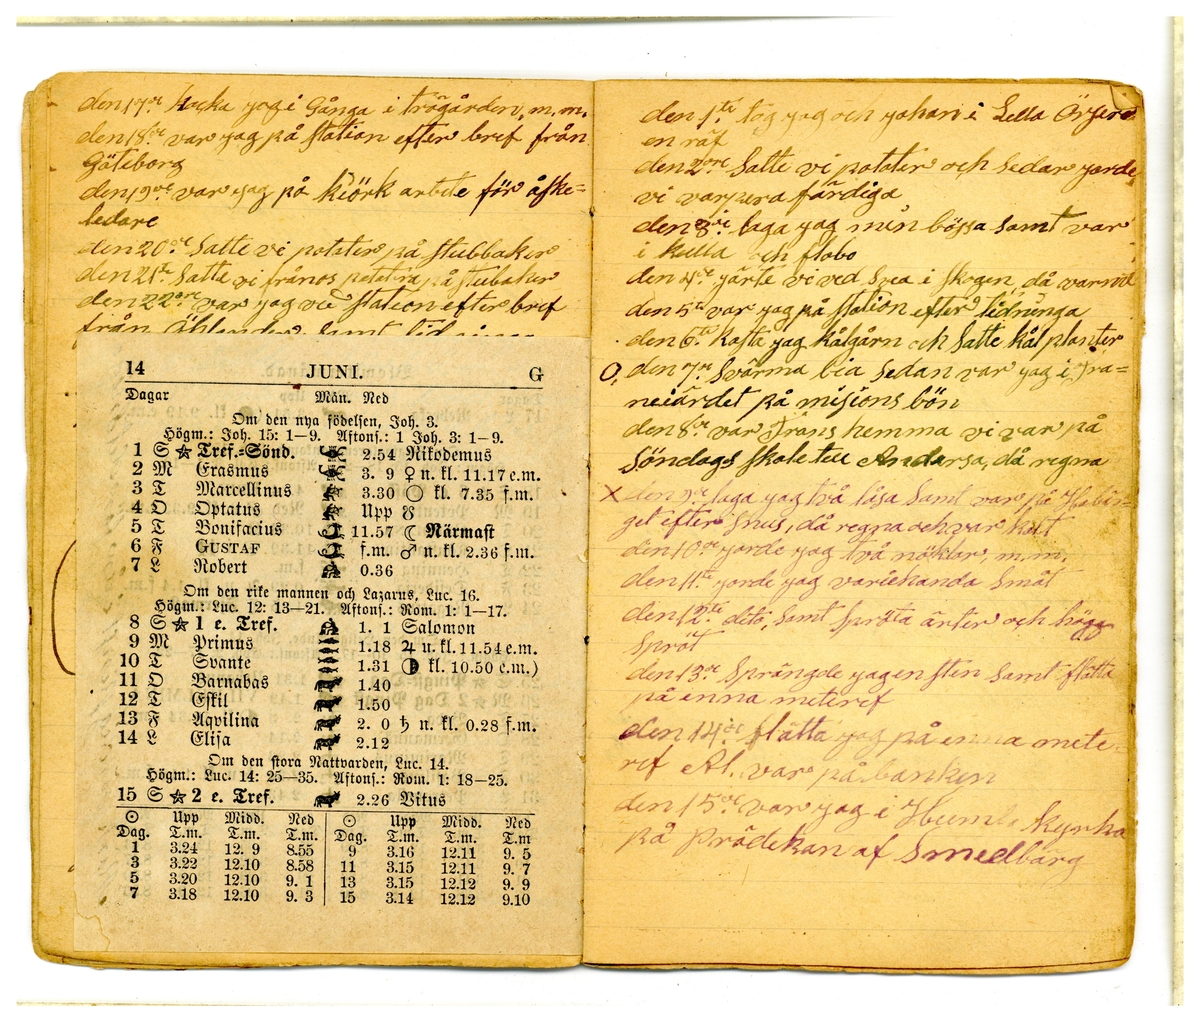 den 17de Hacka jag i Gånga i trägården, m.m.
den 18de var jag på station efter bref från
Göteborg
den 19de var jag på kiörk arbete för åske=
ledare
den 20de Satte vi potater på stubbaker
den 21te Satte vi frånos potatira på stubaker
den 22dre var jag vid station efter bref
från samt
14 JUNI. G
Dagar Mån. Ned
Om den nya födelsen, Joh. 3.
Högm.: Joh. 15: 1–9. Aftons.: 1 Joh. 3: 1–9.
1 S ☆ Tref.=Sönd. 2.54 Nikodemus
2 M Erasmus 3. 9 ♀ n. kl. 11.17 e.m.
3 T Marcellinus 3.30 ○ kl. 7.35 f.m.
4 O Optatus Upp ☋
5 T Bonifacius 11.57 ☾ Närmast
6 F GUSTAF f.m. ♂ n. kl. 2.36 f.m.
7 L Robert 0.36
Om den rike mannen och Lazarus, Luc. 16.
Högm.: Luc. 12: 13–21. Aftons.: Rom. 1: 1–17.
8 S ☆ 1 e. Tref. 1. 1 Salomon
9 M Primus 1.18 ♃ u. kl. 11.54 e.m.
10 T Svante 1.31 ◑ kl. 10.50 e.m.)
11 O Barnabas 1.40
12 T Eskil 1.50
13 F Aqvilina 2. 0 ♄ n. kl. 0.28 f.m.
14 L Elisa 2.12
Om den stora Nattvarden, Luc. 14.
Högm.: Luc. 14: 25–35. Aftons.: Rom. 1: 18–25.
15 S ☆ 2 e. Tref. 2.26 Vitus
☉ Upp Midd. Ned ☉ Upp Midd. Ned
Dag. T.m. T.m. T.m. Dag. T.m. T.m. T.m
1 3.24 12. 9 8.55 9 3.16 12.11 9. 5
3 3.22 12.10 8.58 11 3.15 12.11 9. 7
5 3.20 12.10 9. 1 13 3.15 12.12 9. 9
7 3.18 12.10 9. 3 15 3.14 12.12 9.10
den 1ta tog jag och johan i Lella
en räf
den 2dre Satte vi potater och Sedar jorde
vi varpera färdiga
den 3de laga jag min bössa Samt var
i Killa och flobo
den 4de järte vi ved Svea i Skogen, då
den 5te var jag på station efter tidninga
den 6te kasta jag kålgårn och Satte kål planter
O, den 7de Svärma bia Sedan var jag i Tra=
neiärdet på misions bön
den 8de var Frans hemma vi var på
Söndags Skole teu Andarsa, då regna
X den 9de laga jag två låsa Samt var på
get efter Snus, då regna och var kalt
den 10de jorde jag två nöklar, m. m,
den 11te jorde jag varlehanda Småt
den 12te deto, Samt Spräta ärter och högg
Spröt
den 13de Sprängde jag en Sten Samt flätta
på enna meteref
den 14de flätta jag på enna mete
ref Al. var på banken
den 15de var jag i Humle kyrka
på prädekan af Smedbärg